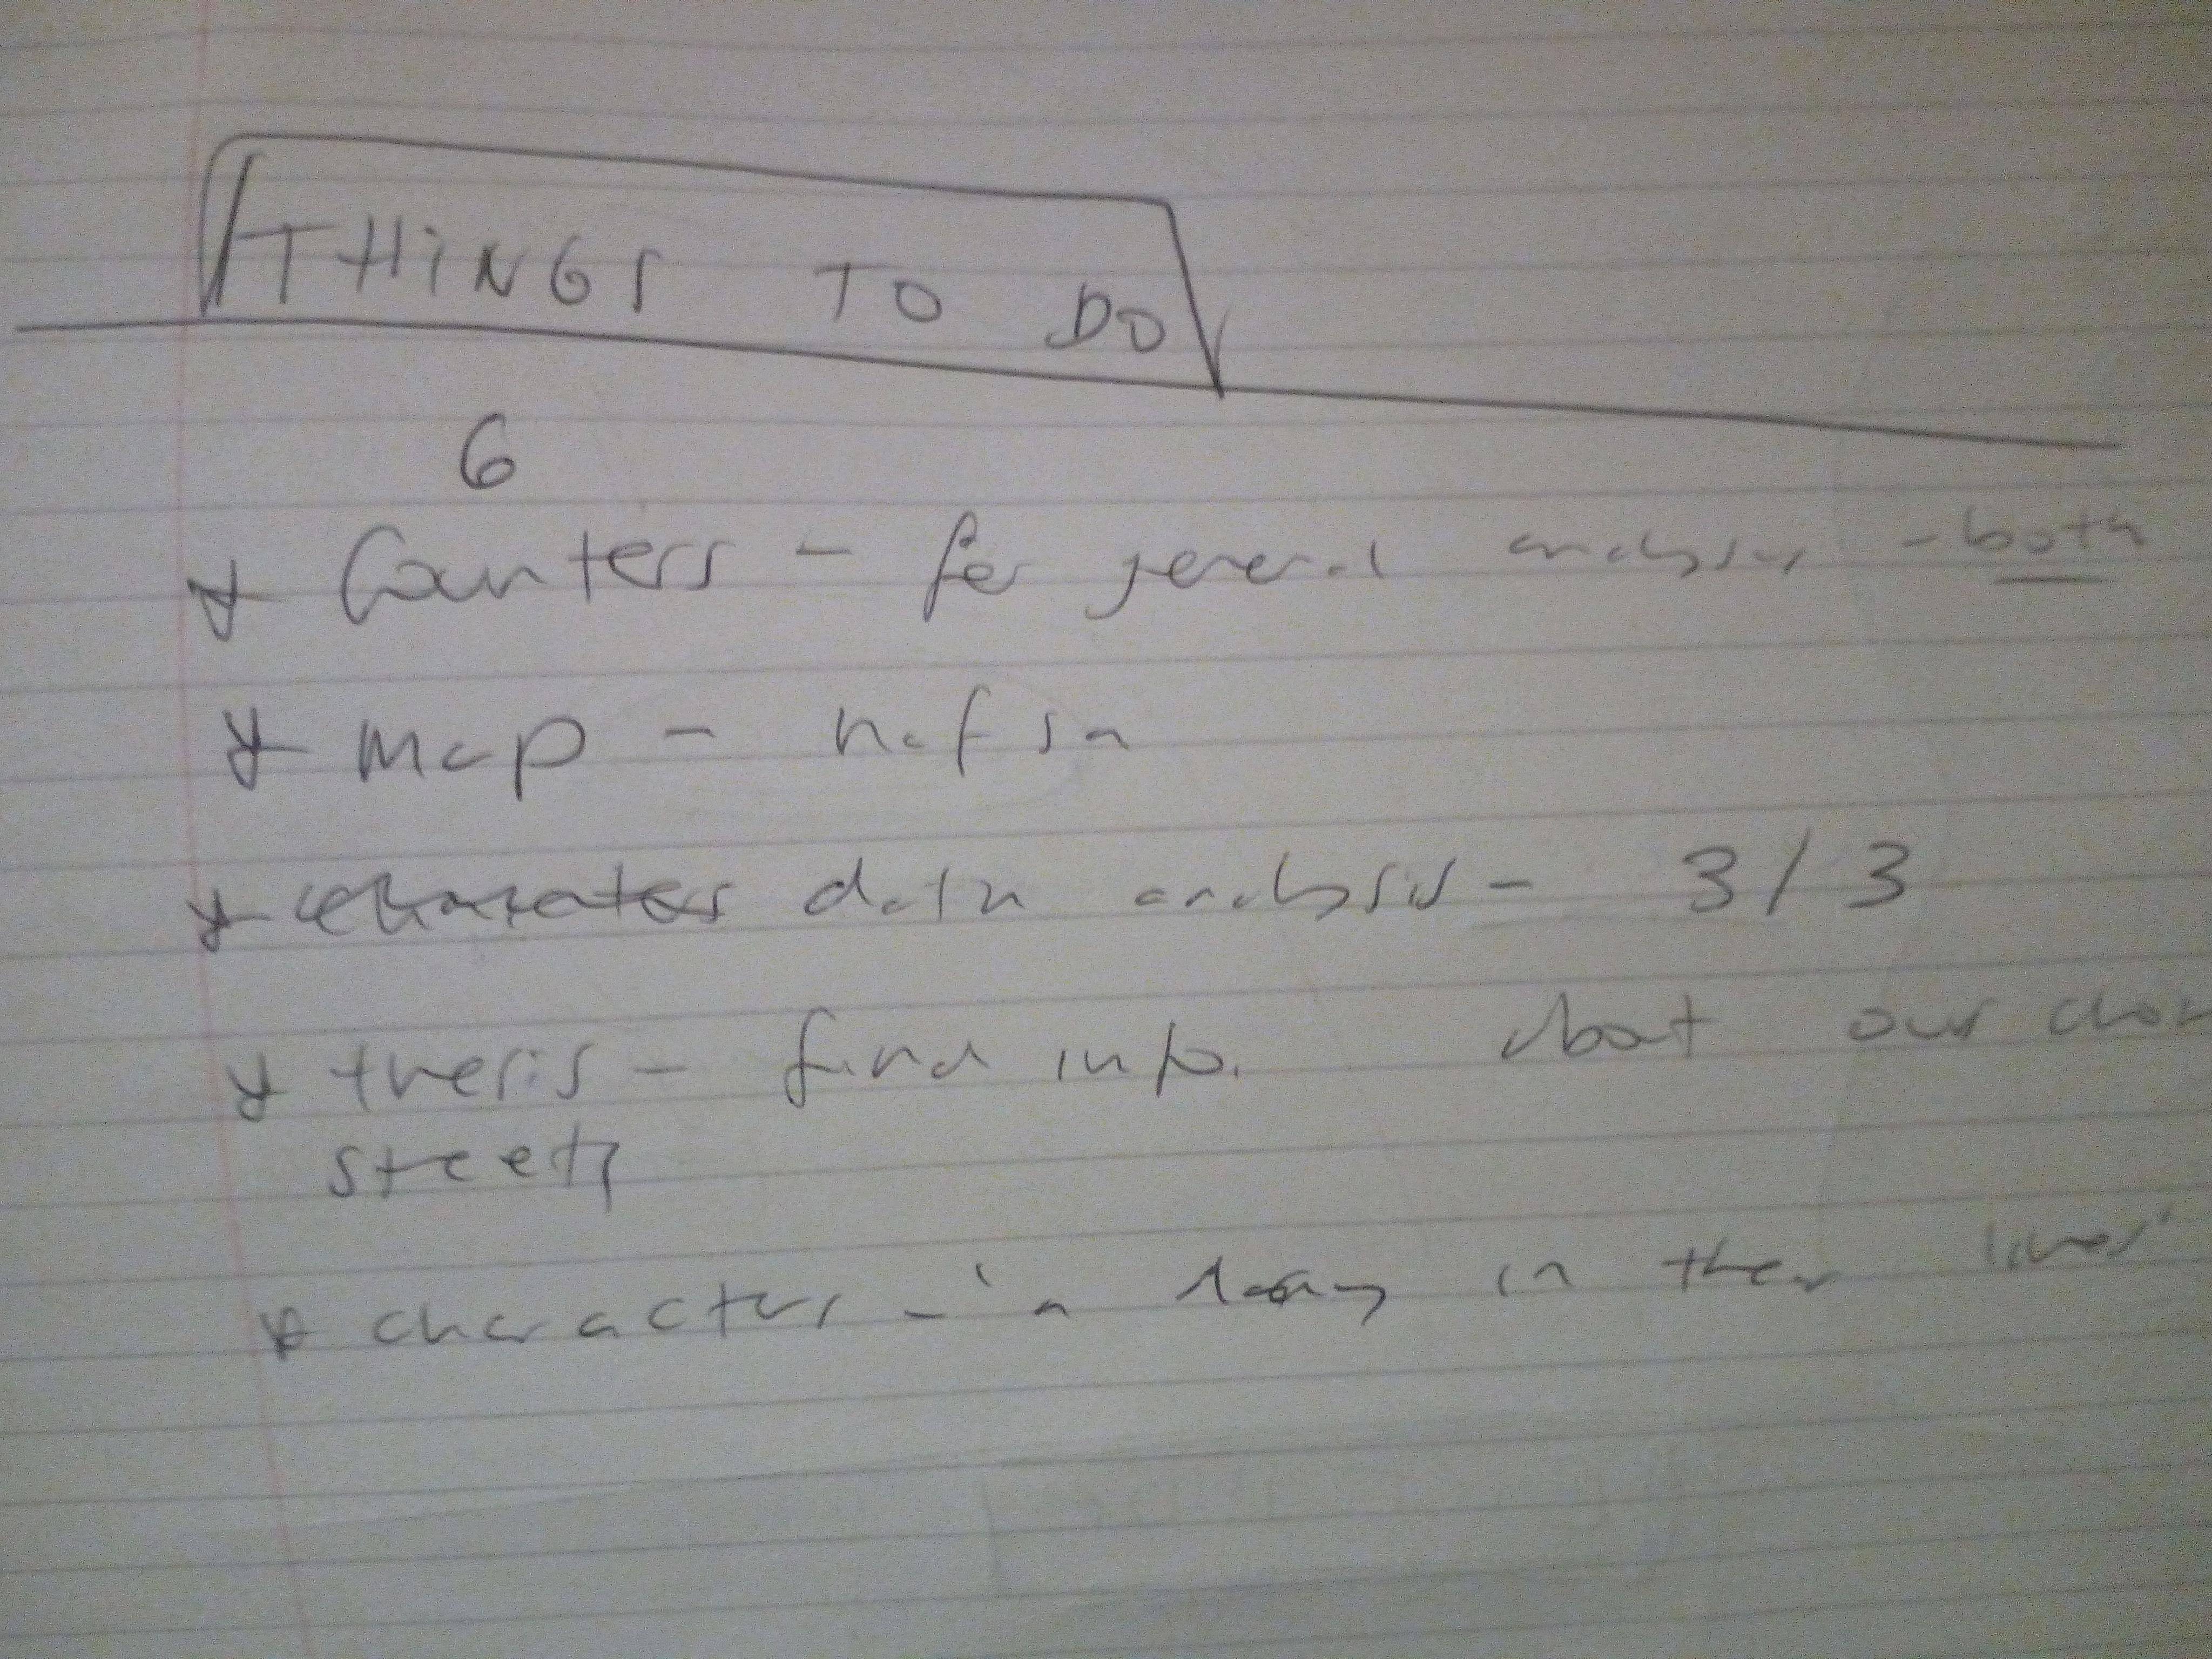 THINGS TO DO
6
* Counters - for general analysis - both
* map - hafsa
* data analysis - 3/3
* thesis - find info. about our
streets
* characters - 'a day in their lives'